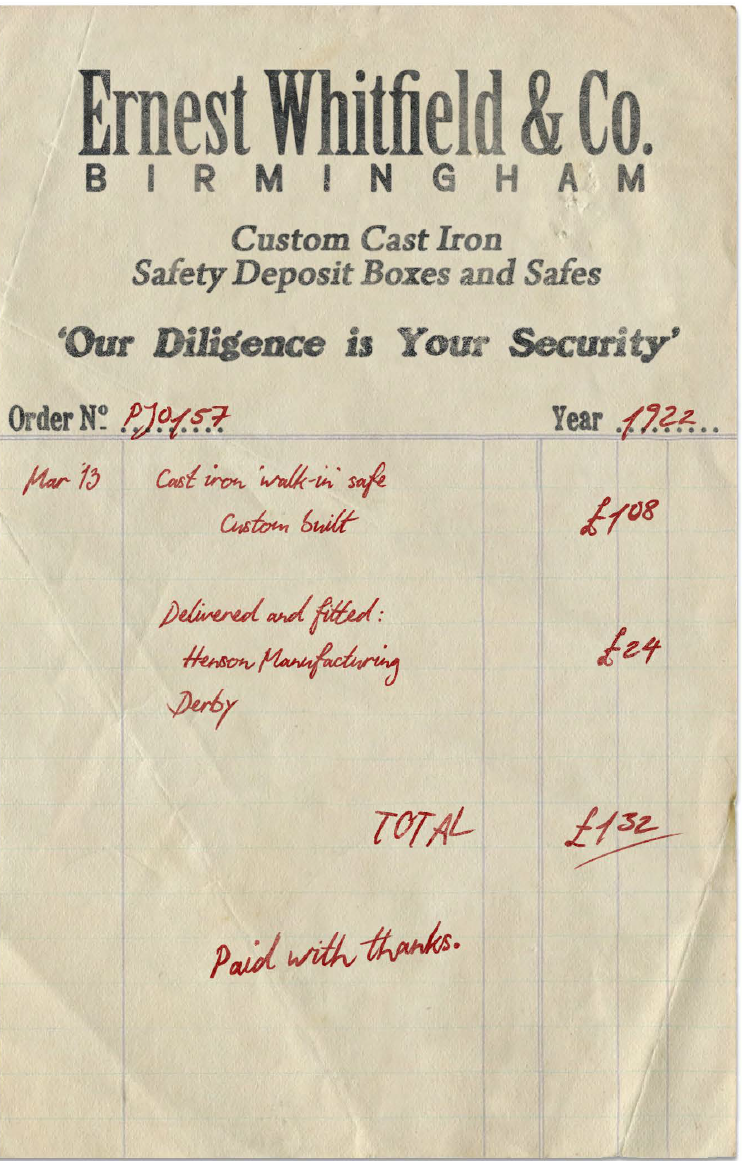 Ernest Whitfield & Co.
BIRMINGHAM
Custom Cast Iron
Safety Deposit Boxes and Safes
'Our Diligence is Your Security'
Order Nº PJ0157 Year 1922
Mar 13 Cast iron 'walk-in' safe
Custom built £108
Delivered and fitted:
Henson Manufacturing £24
Derby
TOTAL £132
Paid with thanks.